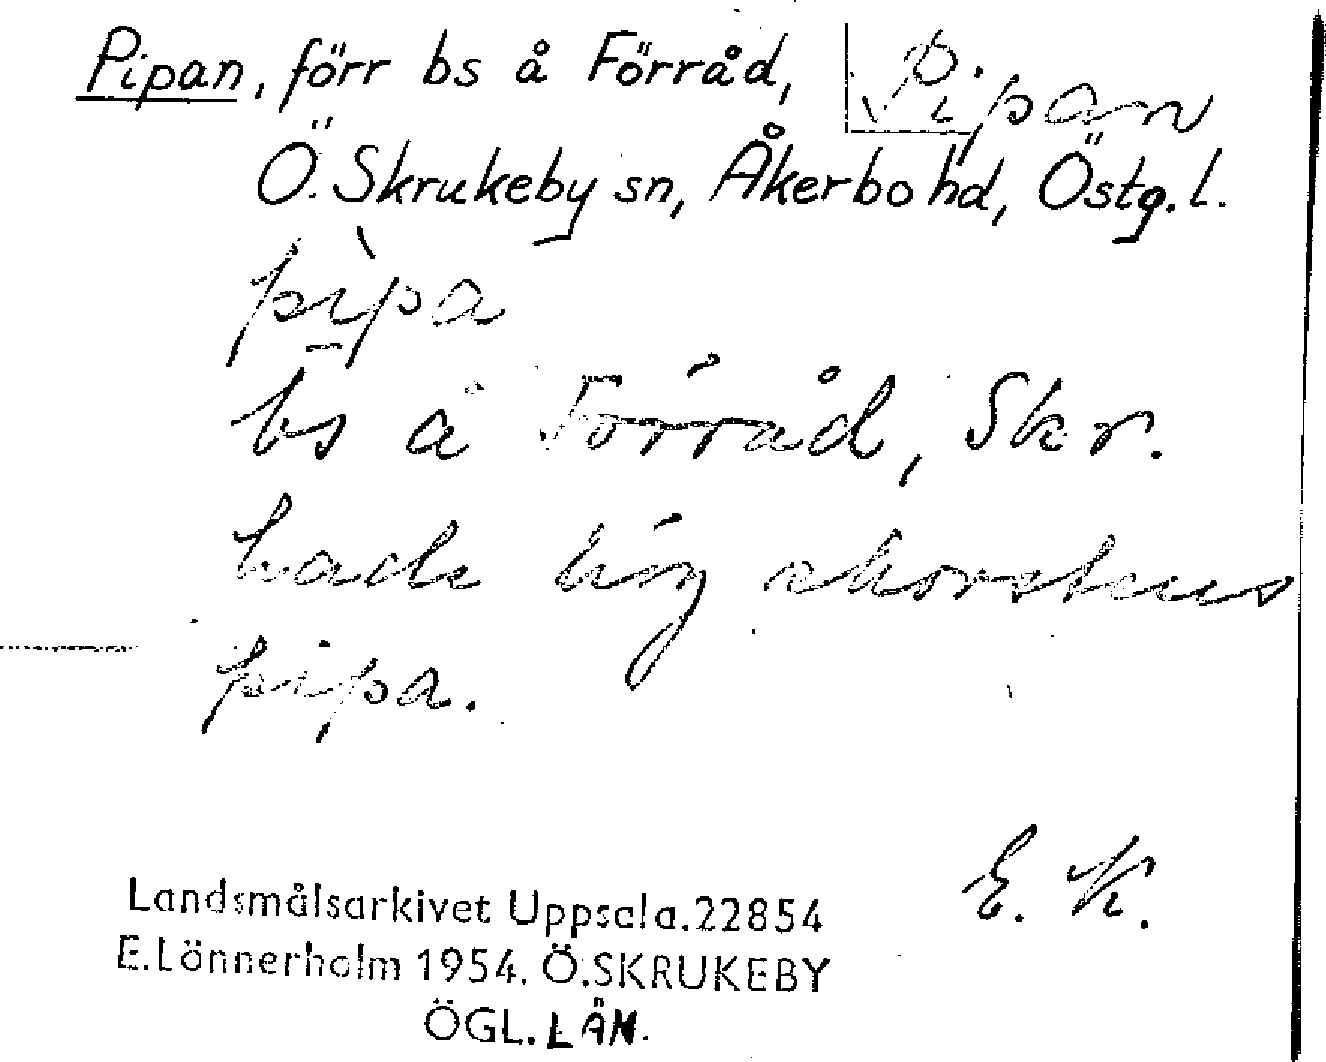 Pipan, förr bs å Förråd,
Pipan
Ö. Skrukeby sn, Åkerbo hd, Östg. l.
pìpa
bs å Förråd, Skr.
hade hög skorstens
pipa.
E. K.
Landsmålsarkivet Uppsala.22854
E.Lönnerholm 1954. Ö.SKRUKEBY
ÖGL. LÄN.